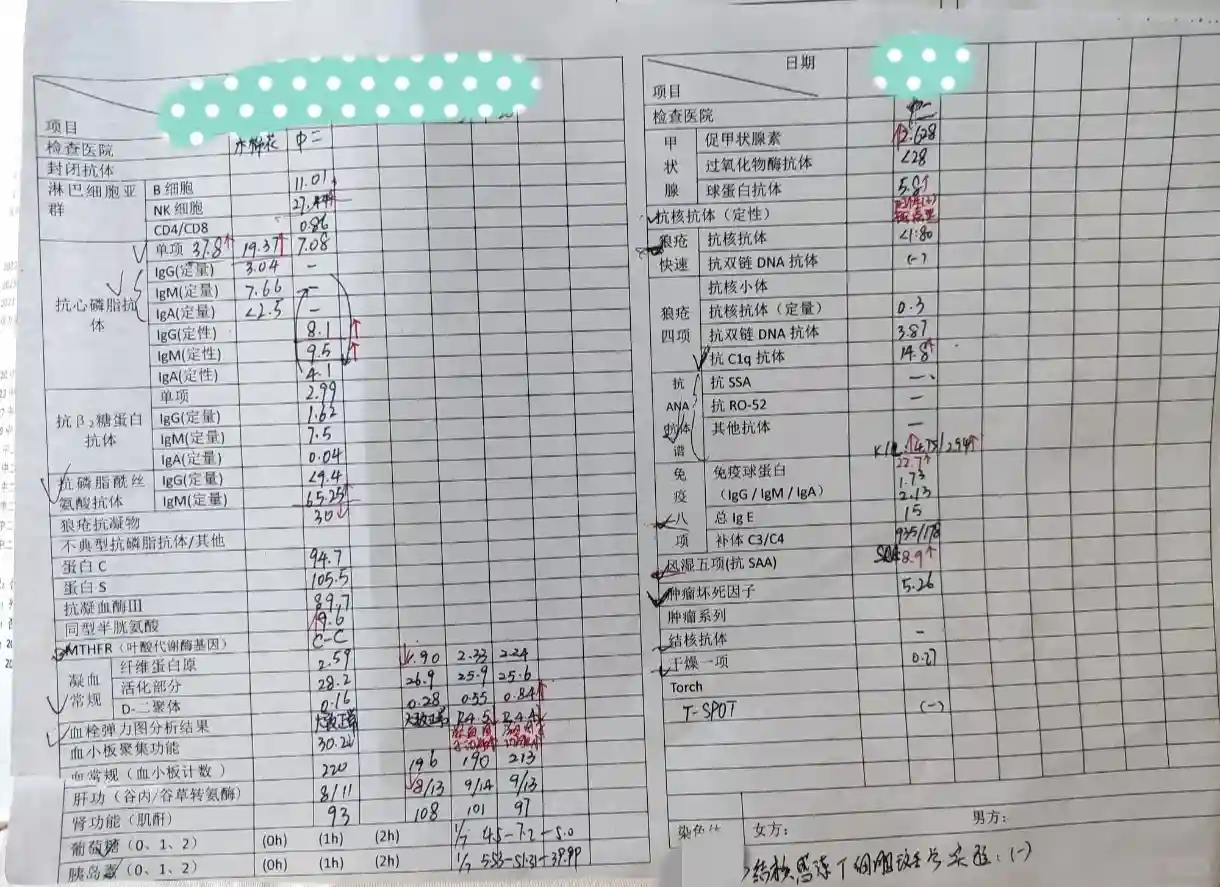 项目
检查医院 中二
封闭抗体
淋巴细胞亚群 B细胞 11.01
NK细胞 27.44↑
CD4/CD8 0.86
抗心磷脂抗体 单项 37.8↑ 19.37↑ 7.08
IgG(定量) 3.04 -
IgM(定量) 7.66 -
IgA(定量) <2.5 -
IgG(定性) 8.1↑
IgM(定性) 9.5↑
IgA(定性) 4.1
抗β₂糖蛋白抗体 单项 2.99
IgG(定量) 1.62
IgM(定量) 7.5
IgA(定量) 0.04
抗磷脂酰丝氨酸抗体 IgG(定量) <9.4
IgM(定量) 65.25↑
狼疮抗凝物 30↓
不典型抗磷脂抗体/其他
蛋白C 94.7
蛋白S 105.5
抗凝血酶Ⅲ 89.7
同型半胱氨酸 9.6
MTHFR（叶酸代谢酶基因） C-C
凝血常规 纤维蛋白原 2.59 ↓1.90 2.33 2.24
活化部分 28.2 26.9 25.9 25.6
D-二聚体 0.16 0.28 0.55 0.84↑
血栓弹力图分析结果 大致正常 大致正常 R4.5 R4.4
血小板聚集功能 30.2↓
血常规（血小板计数） 220 196 190 213
肝功（谷丙/谷草转氨酶） 8/11 8/13 9/14 9/13
肾功能（肌酐） 93 108 101 97
葡萄糖（0、1、2） (0h) (1h) (2h) 4.5-7.2-5.0
胰岛素（0、1、2） (0h) (1h) (2h) 5.53-51.31-39.99
日期
项目
检查医院 中二
甲状腺 促甲状腺素 ↑2.628
过氧化物酶抗体 <28
球蛋白抗体 5.8↑
抗核抗体（定性）
狼疮快速 抗核抗体 <1:80
抗双链DNA抗体 (-)
狼疮四项 抗核小体
抗核抗体（定量） 0.3
抗双链DNA抗体 3.87
抗C1q抗体 14.8↑
抗ANA抗体谱 抗SSA -
抗RO-52 -
其他抗体 -
免疫八项 免疫球蛋白（IgG/IgM/IgA） 22.7↑ 1.73 2.13
总IgE 15
补体C3/C4 935/178
风湿五项(抗SAA) SAA 8.9↑
肿瘤坏死因子 5.26
肿瘤系列
结核抗体 -
干燥一项 0.27
Torch
T-SPOT (-)
染色体 女方： 男方：